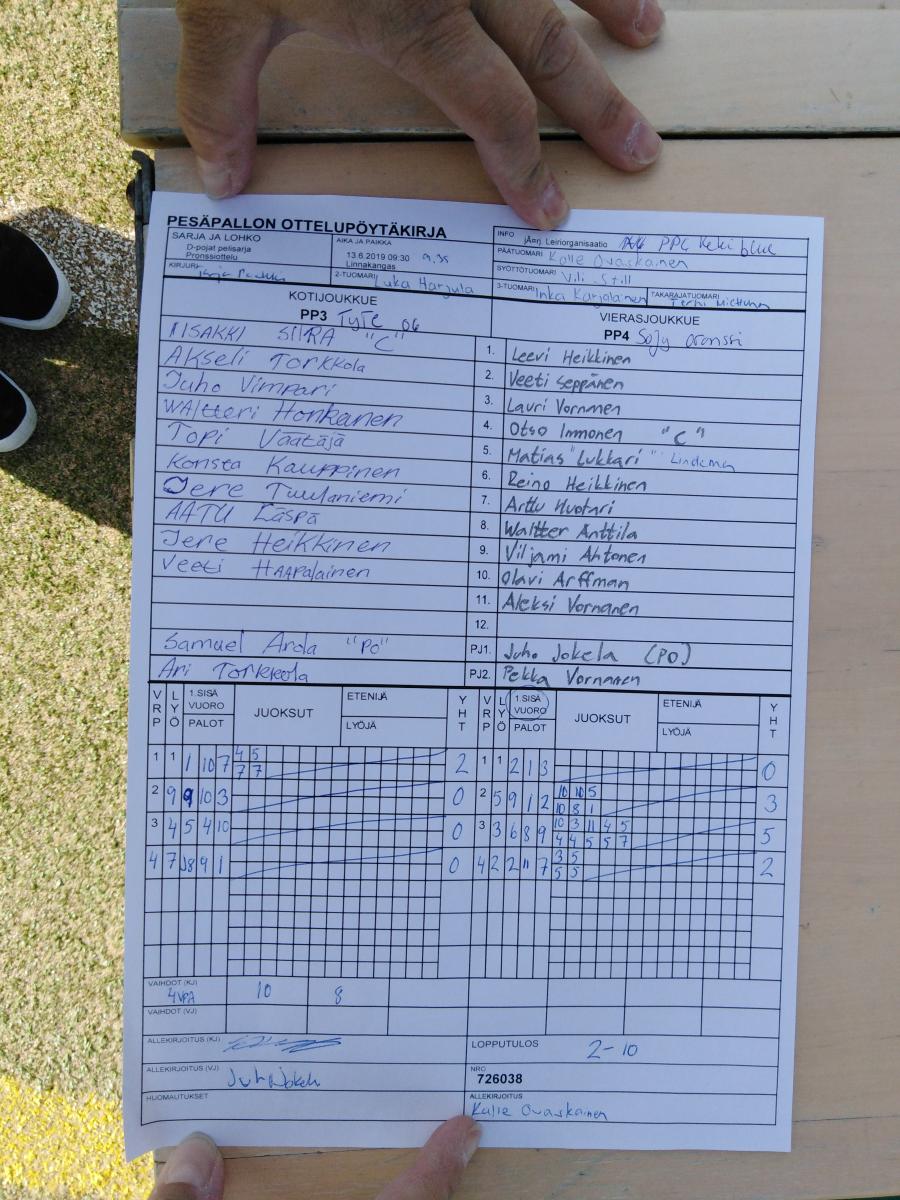 PESÄPALLON OTTELUPÖYTÄKIRJA
SARJA JA LOHKO
D-pojat pelisarja
Pronssiottelu
AIKA JA PAIKKA
13.6.2019 09:30 9.35
Linnakangas
KIRJURI
2-TUOMARI Luka Harjula
INFO
jÄorj. Leiriorganisaatio PPC Keki blue
PÄÄTUOMARI Kalle Ovaskainen
SYÖTTÖTUOMARI Vili Still
3-TUOMARI Inka Karjalainen
TAKARAJATUOMARI Terhi
KOTIJOUKKUE
PP3 TyTe 06
VIERASJOUKKUE
PP4 SoJy oranssi
IISAKKI SIIRA "C" 1. Leevi Heikkinen
Akseli Torkkola 2. Veeti Seppänen
Juho Vimpari 3. Lauri Vornanen
WAltteri Honkanen 4. Otso Immonen "C"
Topi Väätäjä 5. Matias "Lukkari" Lindeman
Konsta Kauppinen 6. Reino Heikkinen
Jere Tuulaniemi 7. Arttu Huotari
AATU Läspä 8. Waltter Anttila
Jere Heikkinen 9. Viljami Ahtonen
Veeti HAAPAlainen 10. Olavi Arffman
11. Aleksi Vornanen
12.
Samuel Arola "Po" PJ1. Juho Jokela (PO)
Ari Torkkola PJ2. Pekka Vornanen
VRP LYÖ 1.SISÄ VUORO PALOT JUOKSUT ETENIJÄ LYÖJÄ YHT VRP LYÖ 1.SISÄ VUORO PALOT JUOKSUT ETENIJÄ LYÖJÄ YHT
4 5
1 1 1 10 7 7 7 2 1 1 2 1 3 0
10 10 5
2 9 9 10 3 0 2 5 9 1 2 10 8 1 3
10 3 11 4 5
3 4 5 4 10 0 3 3 6 8 9 4 4 5 5 7 5
3 5
4 7 8 9 1 0 4 2 2 11 7 5 5 2
VAIHDOT (KJ)
4VPA 10 8
VAIHDOT (VJ)
ALLEKIRJOITUS (KJ)
LOPPUTULOS 2-10
ALLEKIRJOITUS (VJ)
NRO
726038
HUOMAUTUKSET
ALLEKIRJOITUS
Kalle Ovaskainen